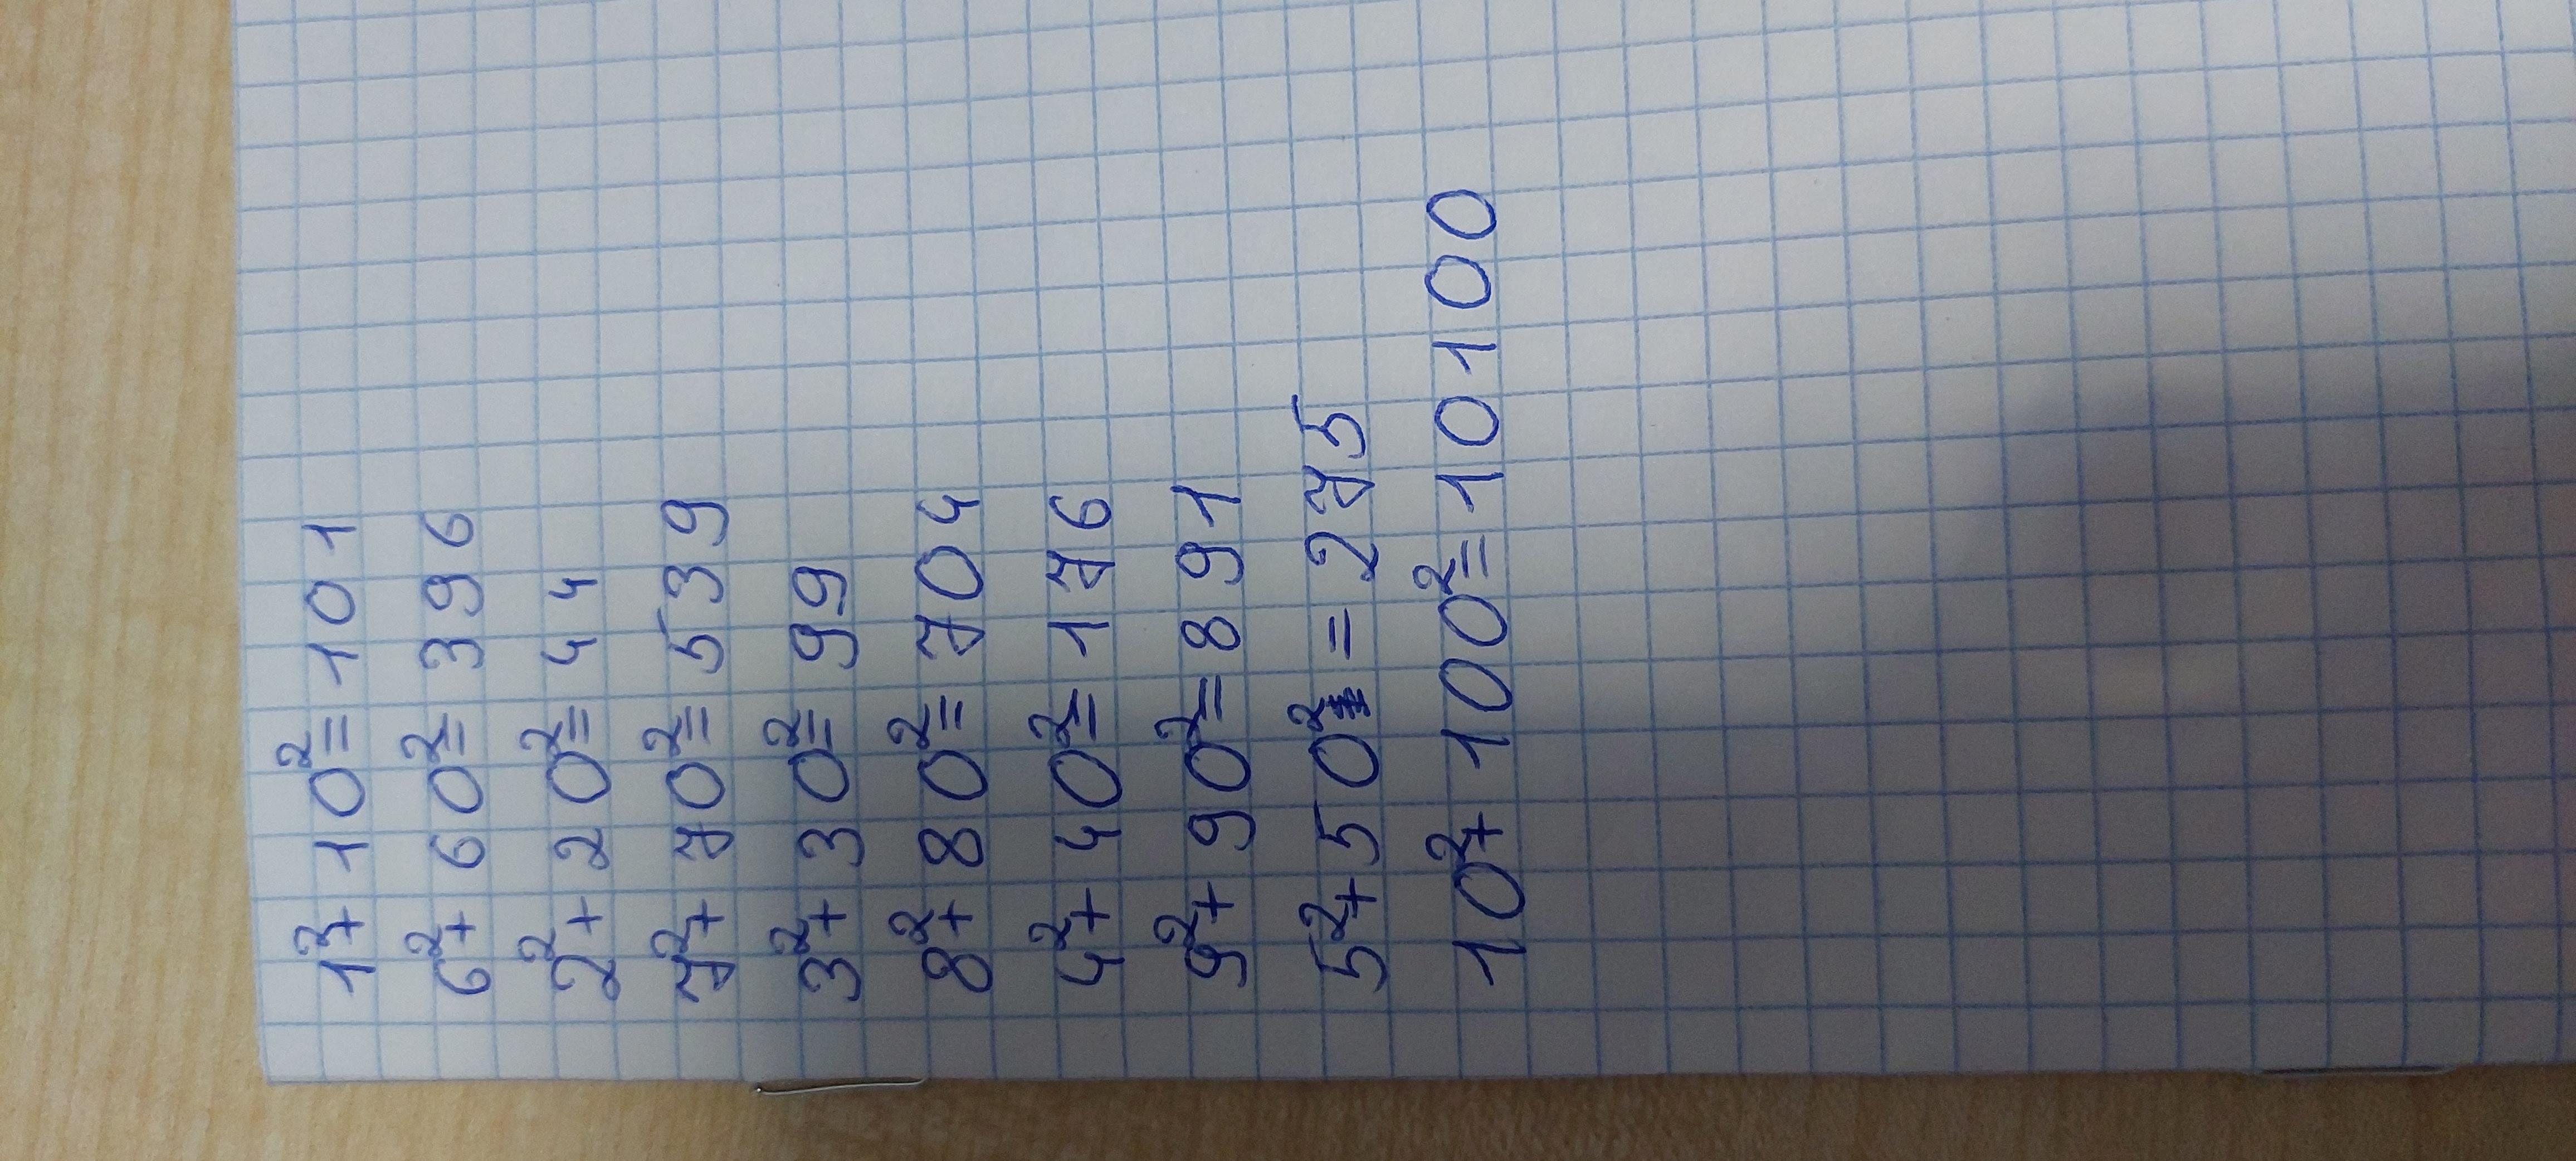 1²+10²=101
6²+60²=396
2²+20²=44
7²+70²=539
3²+30²=99
8²+80²=704
4²+40²=176
9²+90²=891
5²+50²=275
10²+100²=10100